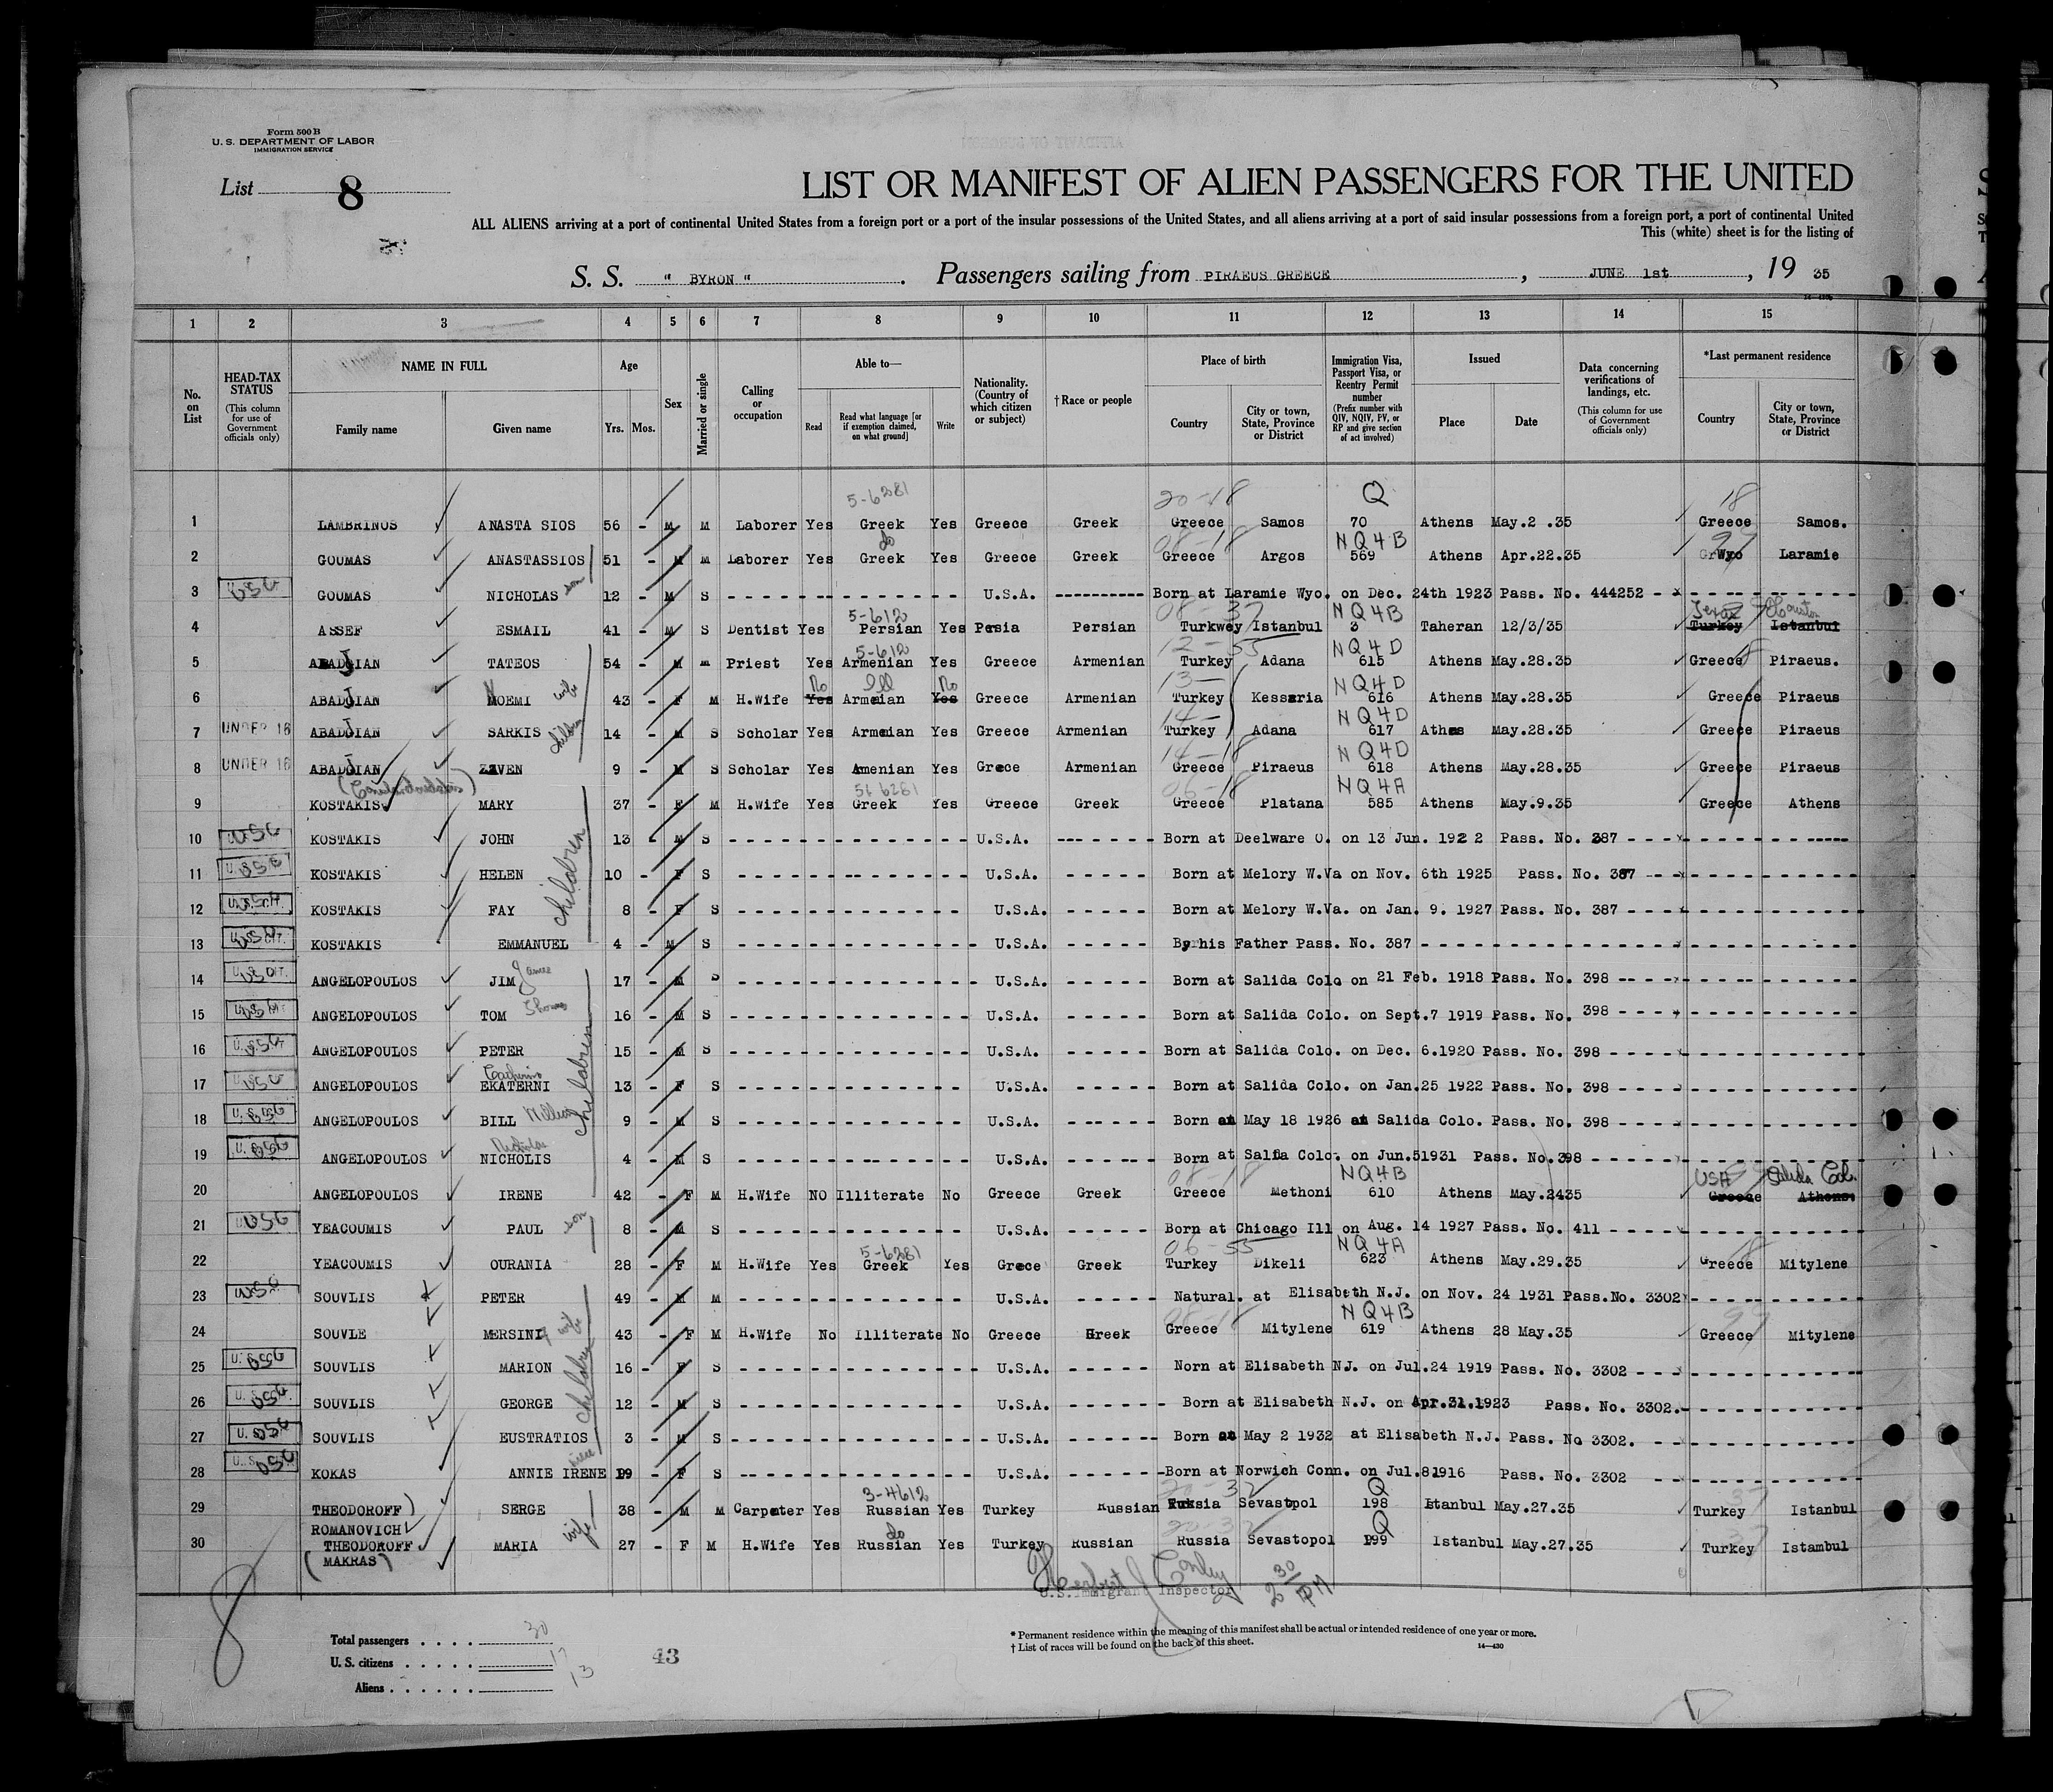 Form 500 B
U. S. DEPARTMENT OF LABOR
IMMIGRATION SERVICE
List 8
LIST OR MANIFEST OF ALIEN PASSENGERS FOR THE UNITED
ALL ALIENS arriving at a port of continental United States from a foreign port or a port of the insular possessions of the United States, and all aliens arriving at a port of said insular possessions from a foreign port, a port of continental United
This (white) sheet is for the listing of
S. S. " BYRON " . Passengers sailing from PIRAEUS GREECE , JUNE 1st , 19 35
1 2 3 4 5 6 7 8 9 10 11 12 13 14 15
No. on List
HEAD-TAX STATUS (This column for use of Government officials only)
NAME IN FULL Family name Given name
Age Yrs. Mos.
Sex
Married or single
Calling or occupation
Able to— Read Read what language [or if exemption claimed, on what ground] Write
Nationality. (Country of which citizen or subject)
†Race or people
Place of birth Country City or town, State, Province or District
Immigration Visa, Passport Visa, or Reentry Permit number (Prefix number with QIV, NQIV, PV, or RP and give section of act involved)
Issued Place Date
Data concerning verifications of landings, etc. (This column for use of Government officials only)
*Last permanent residence Country City or town, State, Province or District
5-6281 20-18 Q 18
1 LAMBRINOS ANASTA SIOS 56 - M M Laborer Yes Greek Yes Greece Greek Greece Samos 70 Athens May.2 .35 Greece Samos.
do 08-18 NQ4B 99
2 GOUMAS ANASTASSIOS 51 - M M Laborer Yes Greek Yes Greece Greek Greece Argos 569 Athens Apr.22.35 Wyo Laramie
3 USC GOUMAS NICHOLAS son 12 - M S U.S.A. Born at Laramie Wyo. on Dec. 24th 1923 Pass. No. 444252
5-612 08-37 NQ4B Texas Houston
4 ASSEF ESMAIL 41 - M S Dentist Yes Persian Yes Persia Persian Turkwey Istanbul 3 Taheran 12/3/35 Turkey Istanbul
5-612 12-55 NQ4D
5 ABADJIAN TATEOS 54 - M m Priest Yes Armenian Yes Greece Armenian Turkey Adana 615 Athens May.28.35 Greece Piraeus.
No Ill No 13- NQ4D
6 ABADJIAN NOEMI wife 43 - F M H.Wife Yes Armeian Yes Greece Armenian Turkey Kessaria 616 Athens May.28.35 Greece Piraeus
14- NQ4D
7 UNDER 16 ABADJIAN SARKIS children 14 - M S Scholar Yes Armeian Yes Greece Armenian Turkey Adana 617 Athens May.28.35 Greece Piraeus
14-18 NQ4D
8 UNDER 16 ABADJIAN ZAVEN 9 - M S Scholar Yes Amenian Yes Grece Armenian Greece Piraeus 618 Athens May.28.35 Greece Piraeus
56281 06-18 NQ4A
9 KOSTAKIS MARY 37 - F M H.Wife Yes Greek Yes Greece Greek Greece Platana 585 Athens May.9.35 Greece Athens
10 USC KOSTAKIS JOHN 13 - M S U.S.A. Born at Deelware O. on 13 Jun. 192 2 Pass. No. 387
11 USC KOSTAKIS HELEN children 10 - F S U.S.A. Born at Melory W.Va on Nov. 6th 1925 Pass. No. 387
12 KOSTAKIS FAY 8 - F S U.S.A. Born at Melory W.Va. on Jan. 9. 1927 Pass. No. 387
13 KOSTAKIS EMMANUEL 4 - M S U.S.A. By his Father Pass. No. 387
14 ANGELOPOULOS JIM James 17 - M S U.S.A. Born at Salida Colo on 21 Feb. 1918 Pass. No. 398
15 ANGELOPOULOS TOM Thomas 16 - M S U.S.A. Born at Salida Colo. on Sept.7 1919 Pass. No. 398
16 ANGELOPOULOS PETER 15 - M S U.S.A. Born at Salida Colo. on Dec. 6.1920 Pass. No. 398
Catherine
17 USC ANGELOPOULOS EKATERNI children 13 - F S U.S.A. Born at Salida Colo. on Jan.25 1922 Pass. No. 398
18 ANGELOPOULOS BILL William 9 - M S U.S.A. Born an May 18 1926 at Salida Colo. Pass. No. 398
Nicholas
19 ANGELOPOULOS NICHOLIS 4 - M S U.S.A. Born at Salida Colo. on Jun.51931 Pass. No.398
08-18 NQ4B USA Salida Col.
20 ANGELOPOULOS IRENE 42 - F M H.Wife NO Illiterate No Greece Greek Greece Methoni 610 Athens May.2435 Greece Athens.
21 USC YEACOUMIS PAUL son 8 - M S U.S.A. Born at Chicago Ill on Aug. 14 1927 Pass. No. 411
5-6281 06-55 NQ4A 18
22 YEACOUMIS OURANIA 28 - F M H.Wife Yes Greek Yes Grece Greek Turkey Dikeli 623 Athens May.29.35 Greece Mitylene
23 USC SOUVLIS PETER 49 - M M U.S.A. Natural. at Elisabeth N.J. on Nov. 24 1931 Pass.No. 3302
08-18 NQ4B 99
24 SOUVLE MERSINI wife 43 - F M H.Wife No Illiterate No Greece Greek Greece Mitylene 619 Athens 28 May.35 Greece Mitylene
25 SOUVLIS MARION 16 - F S U.S.A. Norn at Elisabeth N.J. on Jul.24 1919 Pass. No. 3302
26 SOUVLIS GEORGE children 12 - M S U.S.A. Born at Elisabeth N.J. on Apr.31.1923 Pass. No. 3302.
27 SOUVLIS EUSTRATIOS 3 - M S U.S.A. Born on May 2 1932 at Elisabeth N.J. Pass. No 3302.
28 KOKAS ANNIE IRENE niece 19 - F S U.S.A. Born at Norwich Conn. on Jul.81916 Pass. No. 3302
3-4612 20-32 Q 37
29 THEODOROFF) SERGE 38 - M M Carpenter Yes Russian Yes Turkey Russian Russia Sevastopol 198 Istanbul May.27.35 Turkey Istanbul
ROMANOVICH
do 20-32 Q 37
30 THEODOROFF MARIA wife 27 - F M H.Wife Yes Russian Yes Turkey Russian Russia Sevastopol 199 Istanbul May.27.35 Turkey Istambul
(MAKRAS)
Herbert J Conley 2 30/PM
U.S. Immigrant Inspector
8
Total passengers . . . . 30
U. S. citizens . . . . . 17
Aliens . . . . . . 13
43
* Permanent residence within the meaning of this manifest shall be actual or intended residence of one year or more.
† List of races will be found on the back of this sheet.
14—430